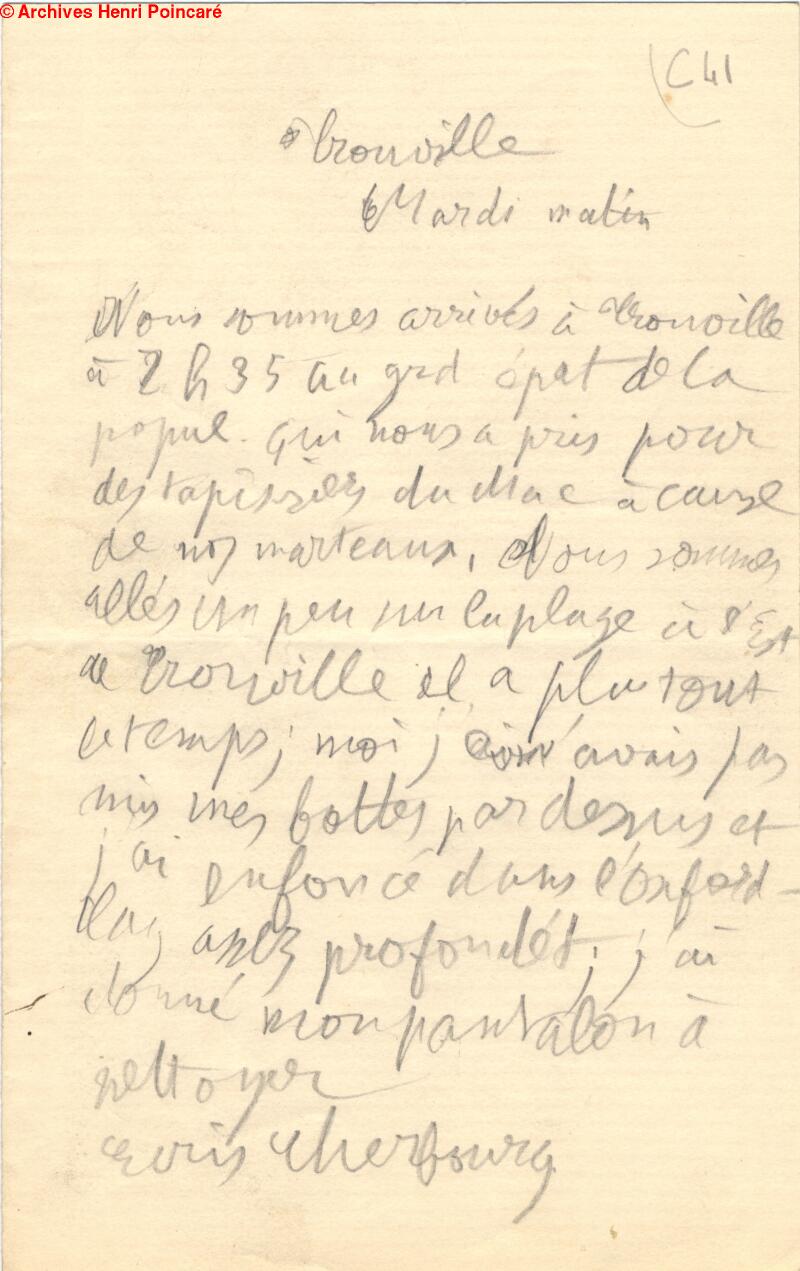 © Archives Henri Poincaré
C41
Trouville
Mardi matin
Nous sommes arrivés à Trouville
à 2 h 35 au grd épat de la
popul. qui nous a pris pour
des tapissiers du Mac à cause
de nos marteaux. Nous sommes
allés un peu sur la plage à l'Est
de Trouville il a plu tout
le temps; moi j' n'avais pas
mis mes bottes par dessus et
j'ai enfoncé dans l'Oxford-
clay assez profondét; j'ai
donné mon pantalon à
nettoyer
Ecris Cherbourg